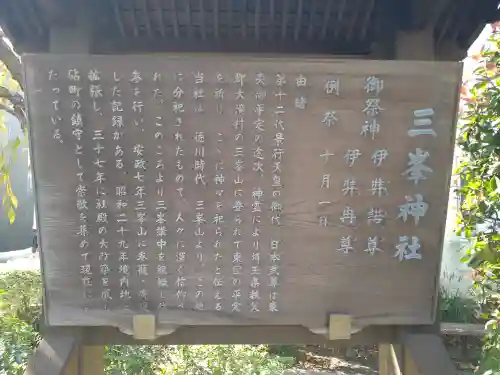 三峯神社
御祭神 伊弉諾尊
伊弉冉尊
例祭 十月一日
由緒
第十二代景行天皇の御代、日本武尊は東
夷御平定の途次、神霊により埼玉県秩父
郡大滝村の三峯山に登られて東国の平定
を祈り、ここに神々を祀られたと伝える
当社は、徳川時代、三峯山より、この地
に分祀されたもので、人々に深く信仰さ
れた。このころより三峯講中を組織し
参を行い、安政七年三峯山に奉
した記録がある。昭和二十九年境内地
拡張し、三十七年に社殿の大改築を
砧町の鎮守として崇敬を集めて現在に
たっている。